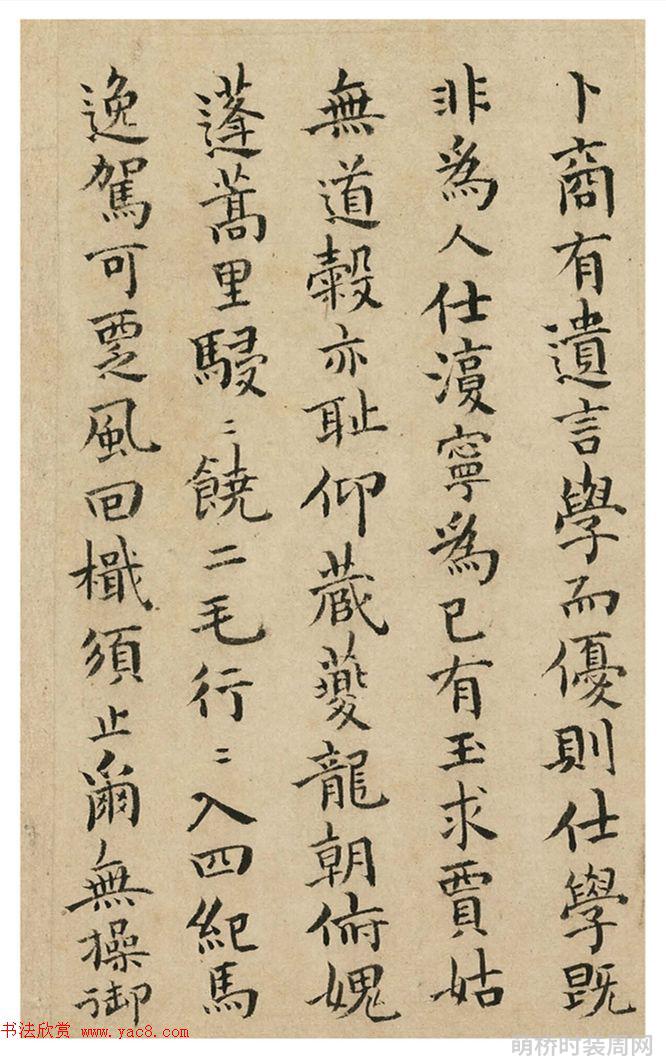 卜商有遺言學而優則仕學既
非為人仕寧為已有玉求賈姑
無道穀亦恥仰蔵夔龍朝俯媿
蓬蒿里駸〻饒二毛行〻入四紀馬
逸駕可覂風回檝須止爾無操御
书法欣赏 www.yac8.com
明桥时装周网